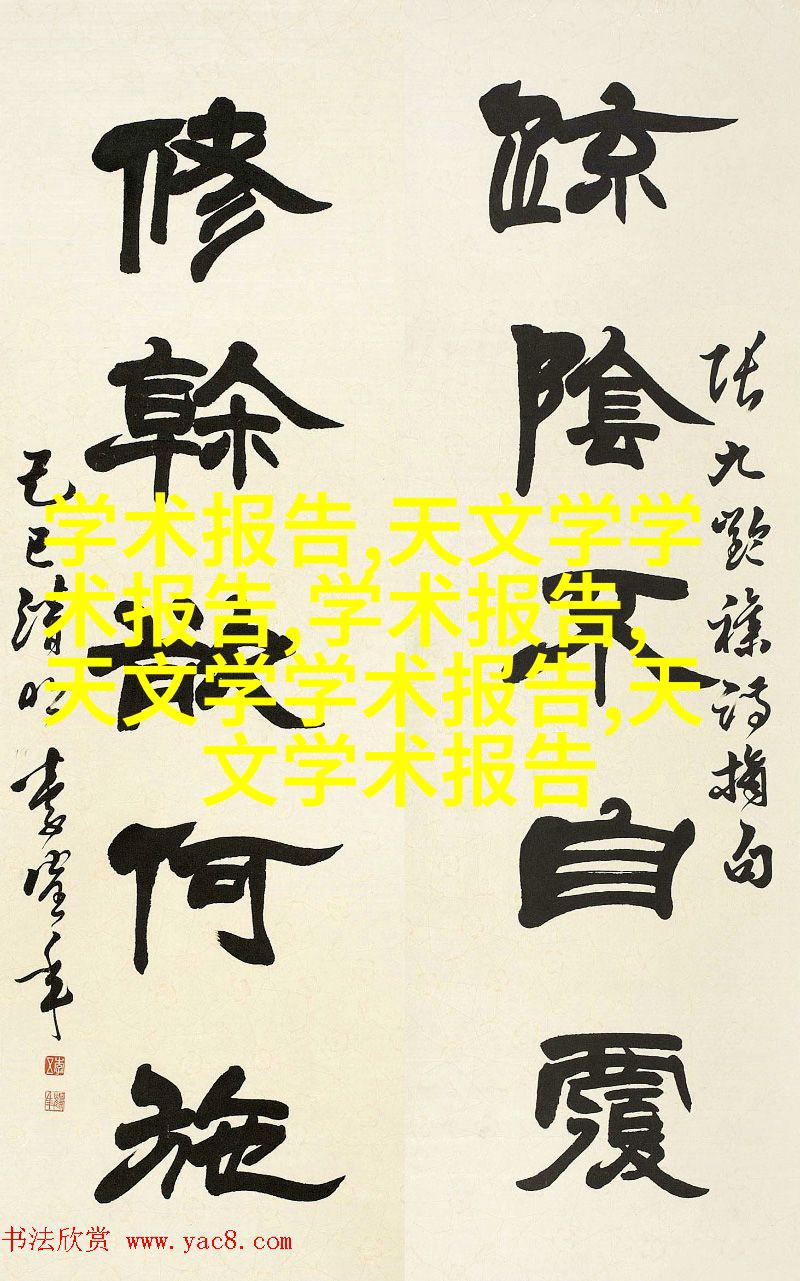 疏陰不自覆
修幹散何施
張九齡雜詩摘句
己巳清明
學术报告,天文学学
术报告,学术报告,
天文学学术报告,天
文学术报告
书法欣赏 www.yac8.com